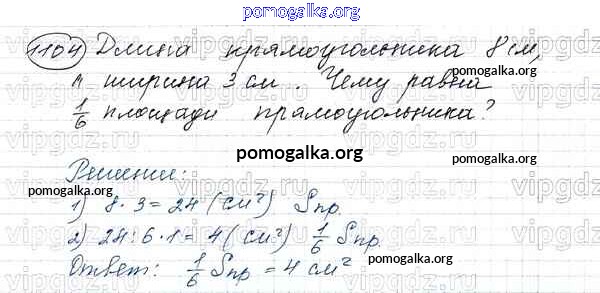 pomogalka.org
1104 Длина прямоугольника 8 см,
а ширина 3 см. Чему равна
1/6 площади прямоугольника?
pomogalka.org
Решение:
pomogalka.org
1) 8 · 3 = 24 (см²) Sпр.
2) 24 : 6 · 1 = 4 (см²) 1/6 Sпр.
Ответ: 1/6 Sпр = 4 см²
pomogalka.org
vipgdz.ru